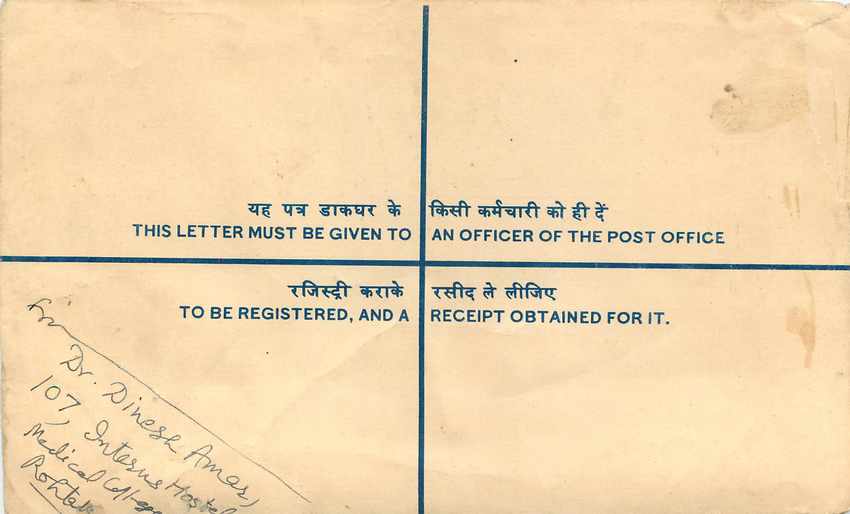 यह पत्र डाकघर के किसी कर्मचारी को ही दें
THIS LETTER MUST BE GIVEN TO AN OFFICER OF THE POST OFFICE
रजिस्ट्री कराके रसीद ले लीजिए
TO BE REGISTERED, AND A RECEIPT OBTAINED FOR IT.
Dr. Dinesh Amar,
107, Interns Hostel
Medical College
Rohtak